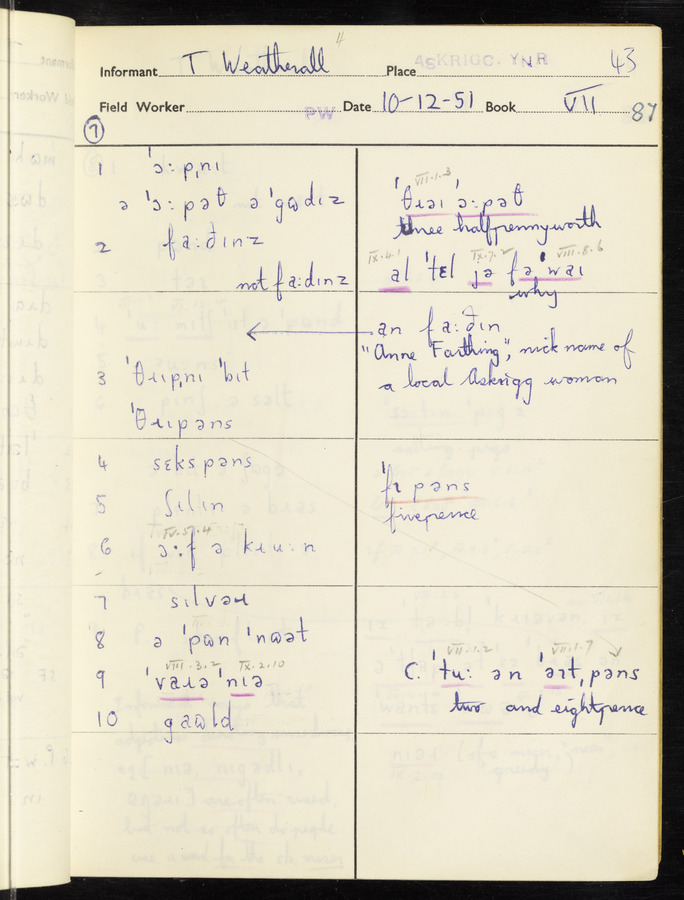 4
Informant T Weatherall Place ASKRIGG. Y.N.R 43
Field Worker PW Date 10-12-51 Book VII 87
7
1 'ɔ:pˌnɪ
ə 'ɔ:pəθ ə 'gɷdɪz
2 fa:ðɪnz
not fa:dɪnz
3 'θɹɪpˌnɪ 'bɪt
'θɹɪpəns
4 sɛkspəns
5 ʃɪlɪn
IV.5.4
6 ɔ:f ə kɹu:n
7 sɪlvəɹ
8 ə 'pɷn 'nɷət
VIII.3.2 IX.2.10
9 'vaɹə 'nɪə
10 gaɷld
VII.1.3
'θɹəɪ 'ɔ:pəθ
three halfpennyworth
IX.4.1 IX.7.2 VIII.8.6
al 'tɛl jə fə 'waɪ
why
an fa:ðɪn
"Anne Farthing", nick name of
a local Askrigg woman
'fɪpəns
fivepence
VII.1.2 VII.1.7
C. 'tu: ən 'əɪtˌpəns
two and eightpence